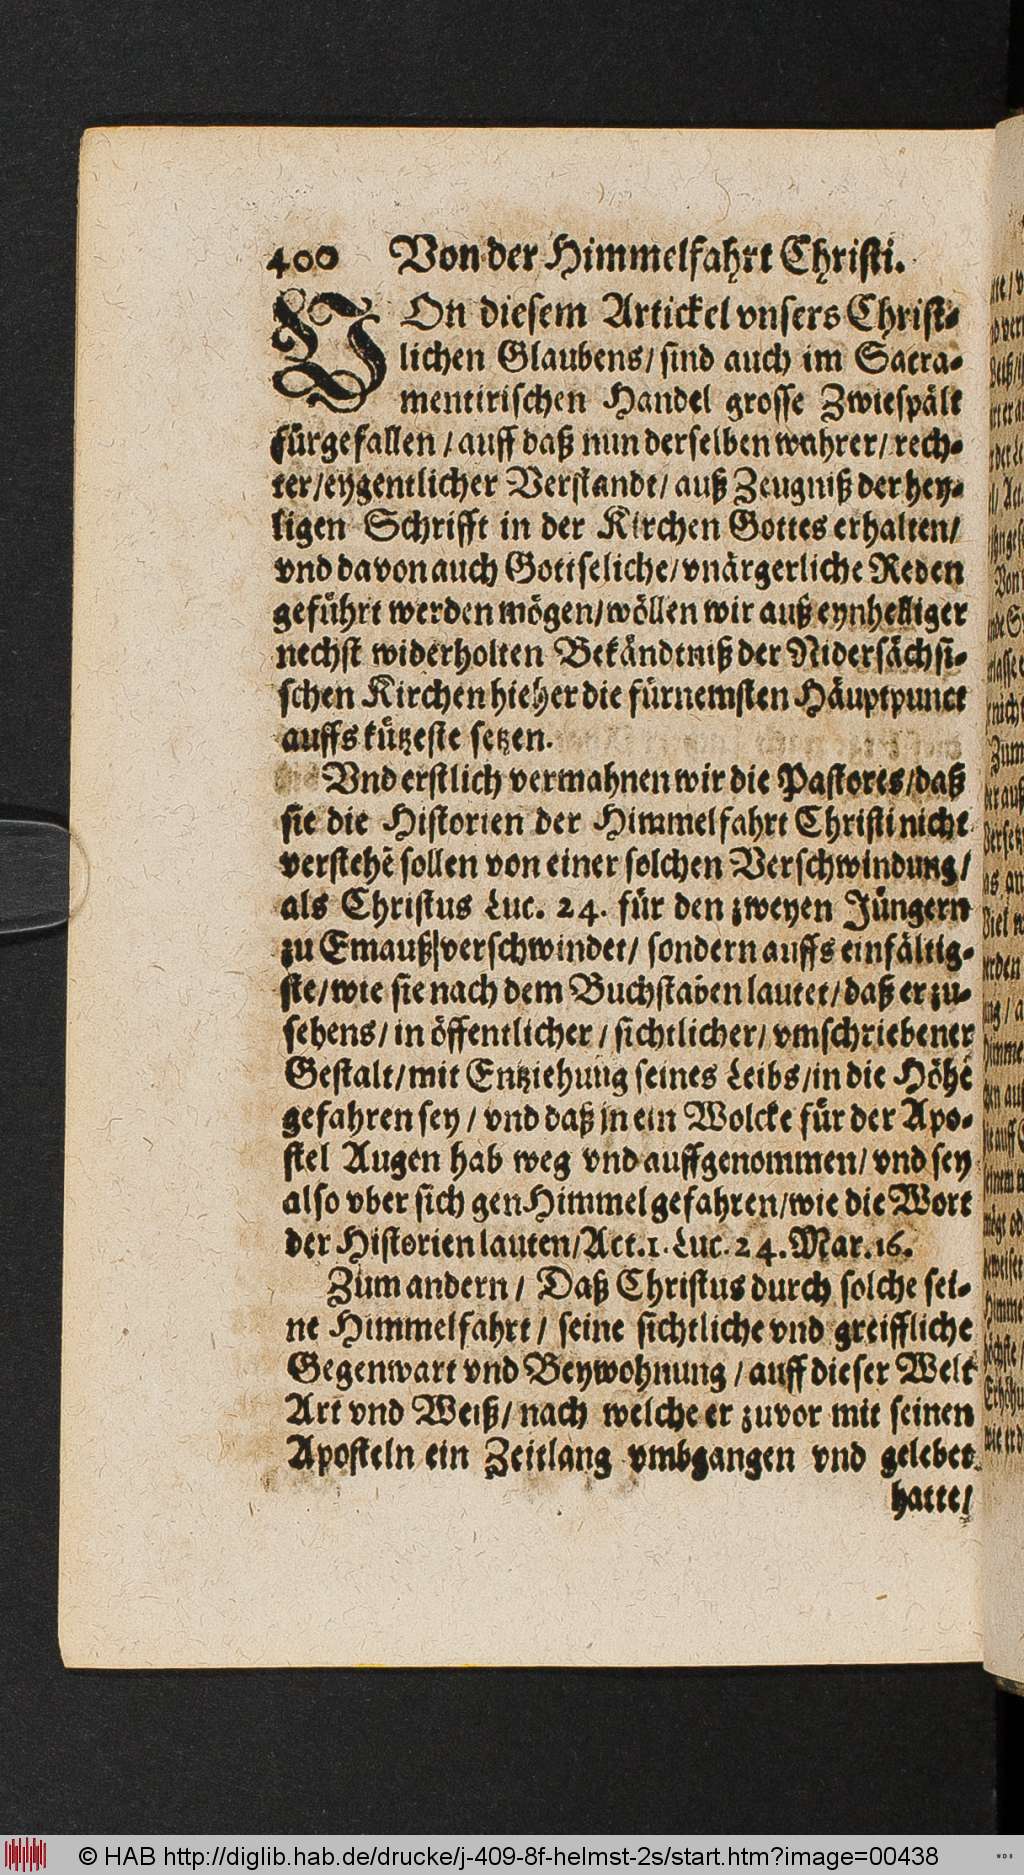 400 Von der Himmelfahrt Christi.
VOn diesem Artickel vnsers Christ-
lichen Glaubens/ sind auch im Sacra-
mentirischen Handel grosse Zwiespält
fürgefallen / auff daß nun derselben wahrer/ rech-
ter/ eygentlicher Verstandt/ auß Zeugniß der hey-
ligen Schrifft in der Kirchen Gottes erhalten/
vnd davon auch Gottseliche/ vnärgerliche Reden
geführt werden mögen/ wöllen wir auß eynhelliger
nechst widerholten Bekändtniß der Nidersächsi-
schen Kirchen hieher die fürnemsten Häuptpunct
auffs kützeste setzen.
Vnd erstlich vermahnen wir die Pastores/ daß
sie die Historien der Himmelfahrt Christi nicht
verstehē sollen von einer solchen Verschwindung/
als Christus Luc. 24. für den zweyen Jüngern
zu Emauß verschwindet/ sondern auffs einfältig-
ste/ wie sie nach dem Buchstaben lautet/ daß er zu-
sehens/ in öffentlicher / sichtlicher/ vmschriebener
Gestalt/ mit Entziehung seines Leibs/ in die Höhe
gefahren sey / vnd daß in ein Wolcke für der Apo-
stel Augen hab weg vnd auffgenommen/ vnd sey
also vber sich gen Himmel gefahren/ wie die Wort
der Historien lauten/ Act. 1. Luc. 24. Mar. 16.
Zum andern / Daß Christus durch solche sei-
ne Himmelfahrt / seine sichtliche vnd greiffliche
Gegenwart vnd Beywohnung / auff dieser Welt
Art vnd Weiß/ nach welche er zuvor mit seinen
Aposteln ein Zeitlang vmbgangen vnd gelebet
hatte/
© HAB http://diglib.hab.de/drucke/j-409-8f-helmst-2s/start.htm?image=00438